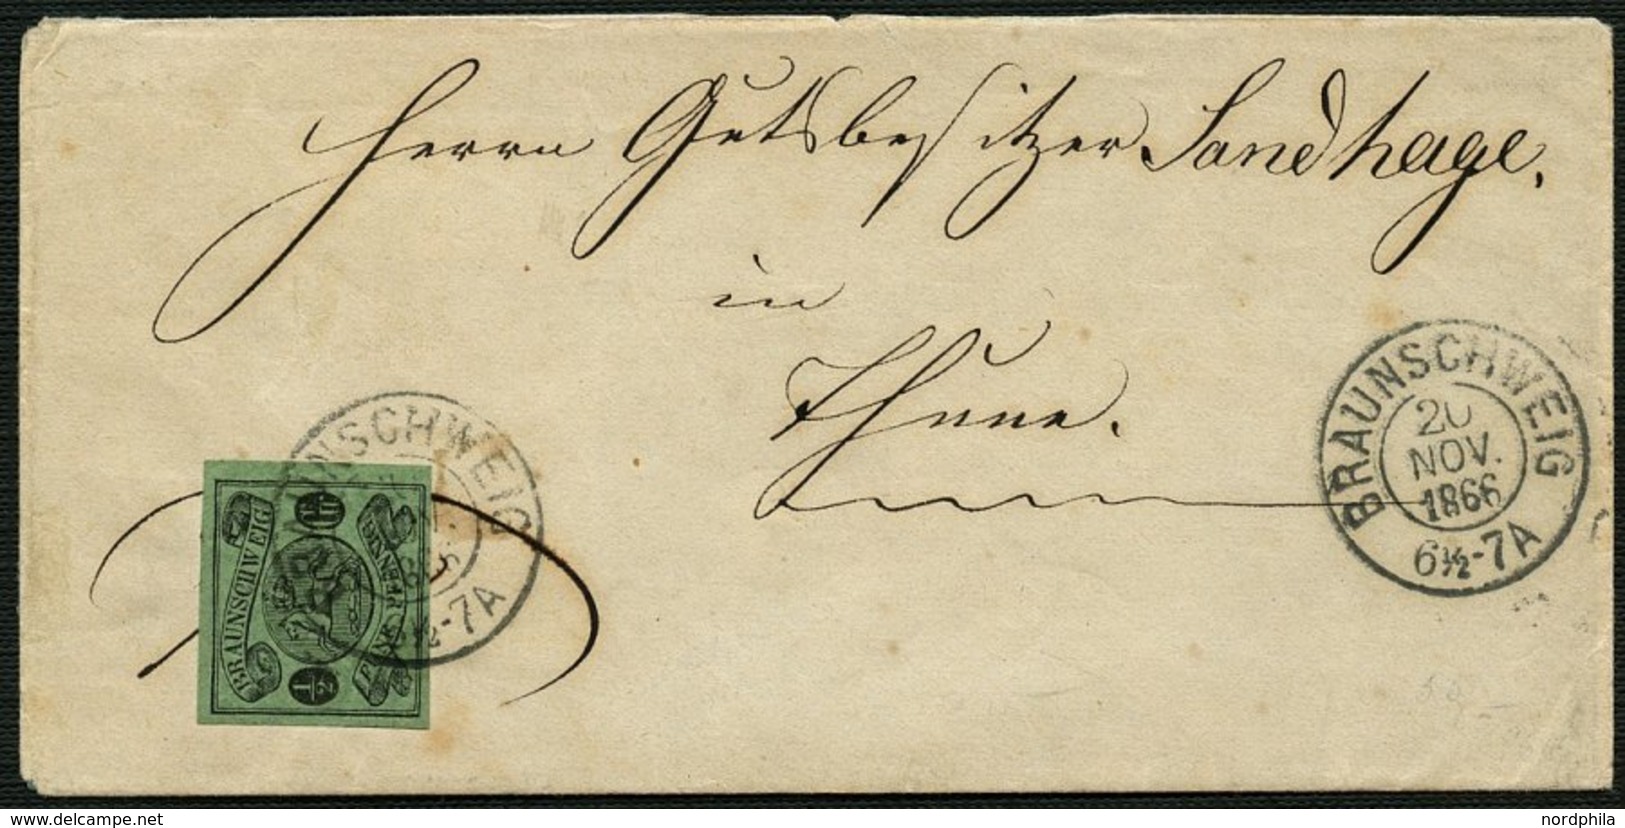 Herrn Gutsbesitzer Sandhage.
in
Thune.
BRAUNSCHWEIG
20
NOV.
1866
6½-7A
NSCHWEIG
½-7A
BRAUNSCHWEIG
½
the-bidder.com
nordphila